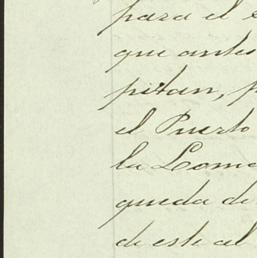 para el
que antes
pitan, p
el Puerto
la Loma
queda de
de este al